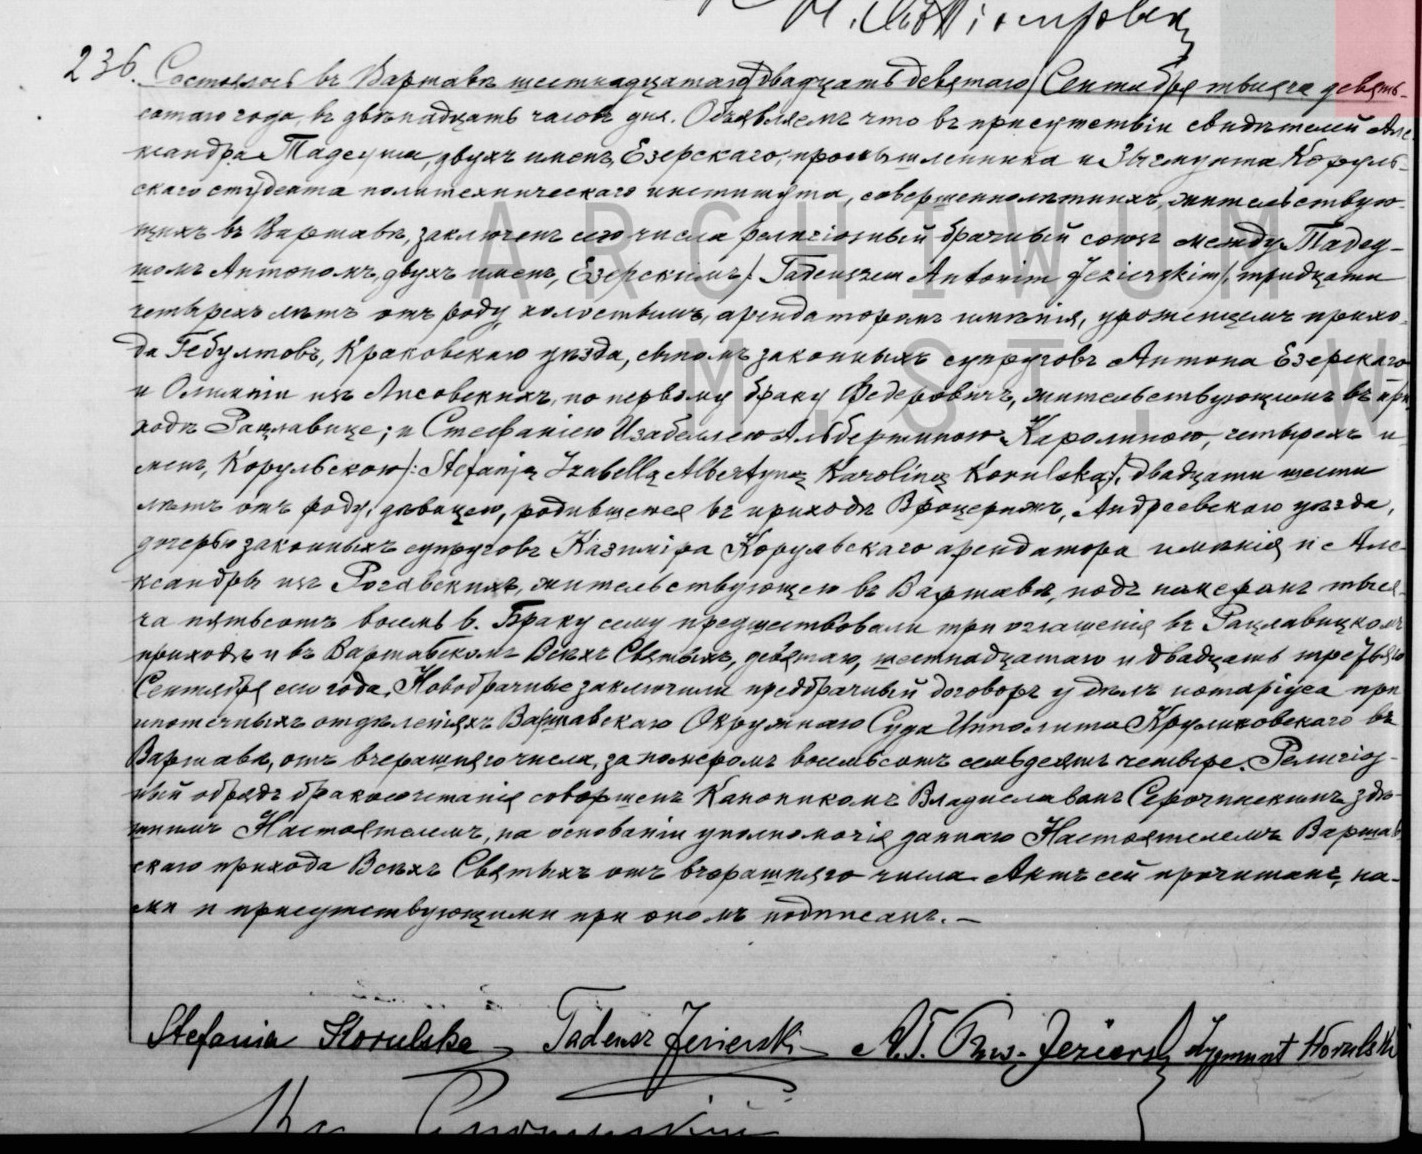 236. Состоялось въ Варшавѣ шестнадцатаго /двадцать девятаго/ Сентября тысяча девять-
сотаго года, въ двѣнадцать часовъ дня. Объявляемъ что въ присутствіи свидѣтелей Але-
ксандра Тадеуша, двухъ именъ, Езерскаго, промышленника и Зыгмунта Коруль-
скаго студента политехническаго института, совершеннолѣтнихъ, жительствую-
щихъ въ Варшавѣ, заключенъ сего числа религіозный брачный союзъ между Тадеу-
шомъ Антономъ, двухъ именъ, Езерскимъ /: Tadeuszem Antonim Jezierskim/, тридцати
четырехъ лѣтъ отъ роду, холостымъ, арендаторомъ имѣнія, уроженцемъ прихо-
да Гебултовъ, Краковскаго уѣзда, сыномъ законныхъ супруговъ Антона Езерскаго
и Олимпіи изъ Лисовскихъ, по первому браку Федеровичъ, жительствующимъ въ при-
ходѣ Рацлавице; и Стефаніею Изабеллею Альбертиною Каролиною, четырехъ и-
менъ, Корульскою /: Stefanją Izabellą Albertyną Karoliną Korulską/, двадцати шести
лѣтъ отъ роду, дѣвицею, родившеюся въ приходѣ Вроцерижъ, Андреевскаго уѣзда,
дочерью законныхъ супруговъ Казиміра Корульскаго арендатора имѣнія и Але-
ксандры изъ Рогавскихъ, жительствующею въ Варшавѣ, подъ номеромъ тыся-
ча пятьсотъ восемь в. Браку сему предшествовали три оглашенія въ Рацлавицкомъ
приходѣ и въ Варшавскомъ Всѣхъ Святыхъ, девятаго, шестнадцатаго и двадцать третьяго
Сентября сего года. Новобрачные заключили предбрачный договоръ у дѣлъ нотаріуса при
ипотечныхъ отдѣленіяхъ Варшавскаго Окружнаго Суда Ипполита Круликовскаго въ
Варшавѣ, отъ вчерашняго числа, за номеромъ восемьсотъ семьдесятъ четыре. Религіоз-
ный обрядъ бракосочетанія совершенъ Каноникомъ Владиславомъ Серочинскимъ здѣ-
шнимъ Настоятелемъ, на основаніи уполномочія даннаго Настоятелемъ Варшав-
скаго прихода Всѣхъ Святыхъ отъ вчерашняго числа. Актъ сей прочитанъ, на-
ми и присутствующими при ономъ подписанъ. —
ARCHIWUM
M. ST. W
Stefania Korulska Tadeusz Jezierski A. T. Jezierski Zygmunt Korulski